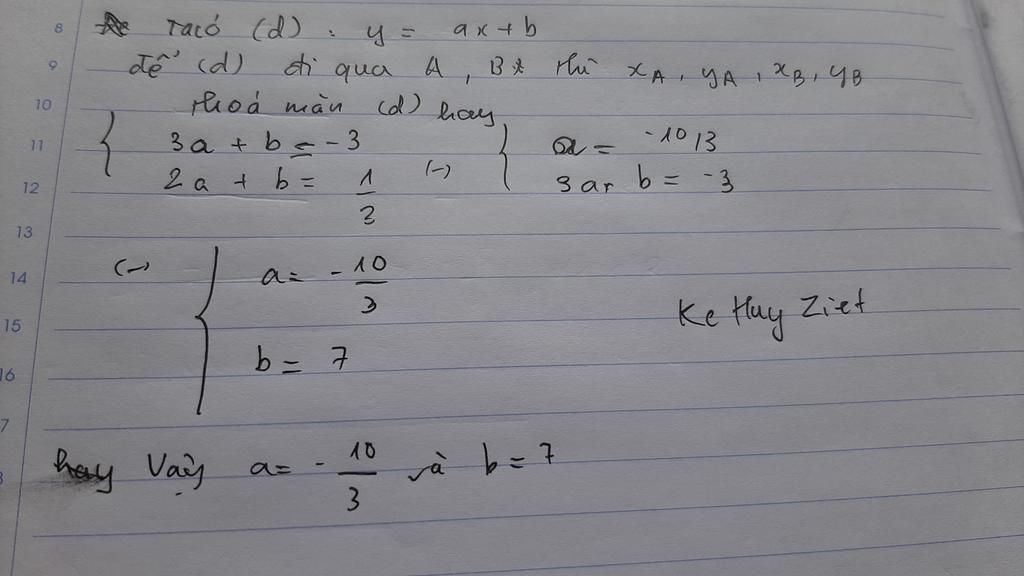 8 Ta có (d) : y = ax + b
9 để (d) đi qua A, B thì xA, yA, xB, yB
10 thoả mãn (d) hay
11 { 3a + b = -3 { a = -10/3
12 2a + b = 1/3 (-) 3a+ b = -3
13
14 (-) { a = - 10/3
15 Ke Huy Ziet
16 b = 7
7
8 hay Vậy a = - 10/3 và b = 7